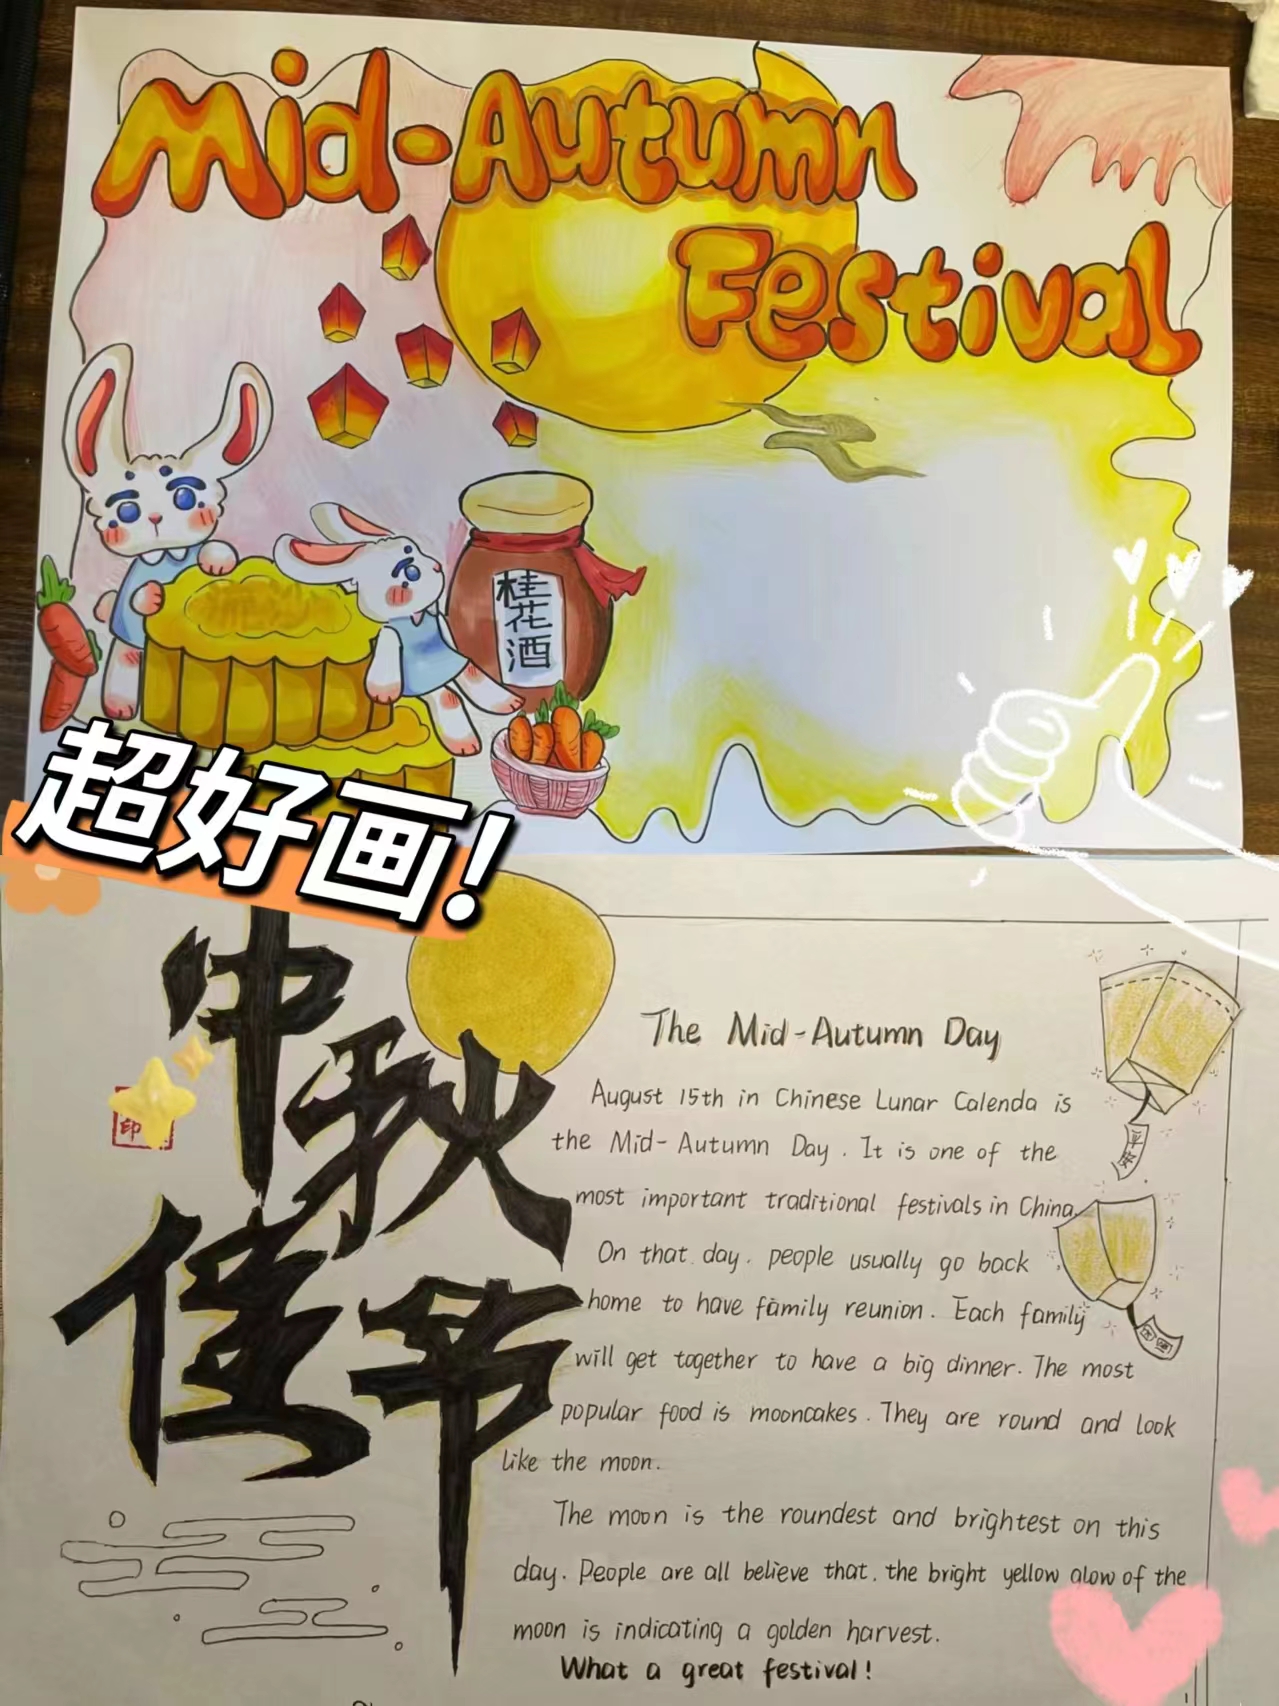 Mid-Autumn
Festival
流沙
桂花酒
超好画!
中秋
佳节
印
The Mid-Autumn Day
August 15th in Chinese Lunar Calenda is
the Mid-Autumn Day. It is one of the
most important traditional festivals in China.
On that day. people usually go back
home to have family reunion. Each family
will get together to have a big dinner. The most
popular food is mooncakes. They are round and look
like the moon.
The moon is the roundest and brightest on this
day. People are all believe that. the bright yellow alow of the
moon is indicating a golden harvest.
What a great festival!